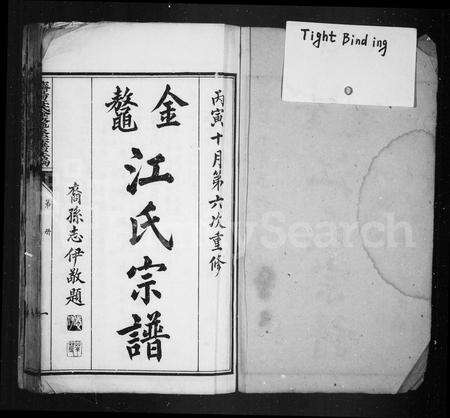 Tight Binding
丙寅十月第六次重修
金鰲
江氏宗譜
裔孫志伊敬題
FamilySearch